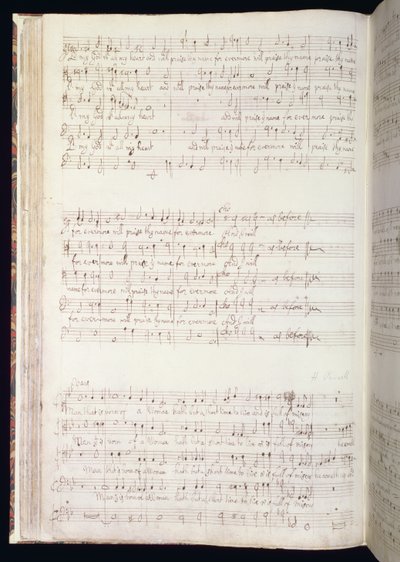 my God wt all my heart and will praise thy name for evermore will praise thy name praise thy name
my God wt all my heart and will praise thy name for evermore will praise name praise thy name
my God wt all my heart and will praise thy name for evermore praise thy
my God wt all my heart and will praise name for evermore will praise thy name
for evermore will praise thy name for evermore And I will as before
for evermore will praise name for evermore And I will as before
name for evermore will praise thy name for evermore And I will as before
for evermore will praise thy name for evermore And I will as before
as before
H Purcell
Man that is born of a Woman hath but a short time to live and is full of misery
Man born of a Woman hath but a short time to live full of misery he cometh
Man born of a Woman hath but a short time to live full of misery he cometh up
Man born of a Woman hath but a short time to live full of misery